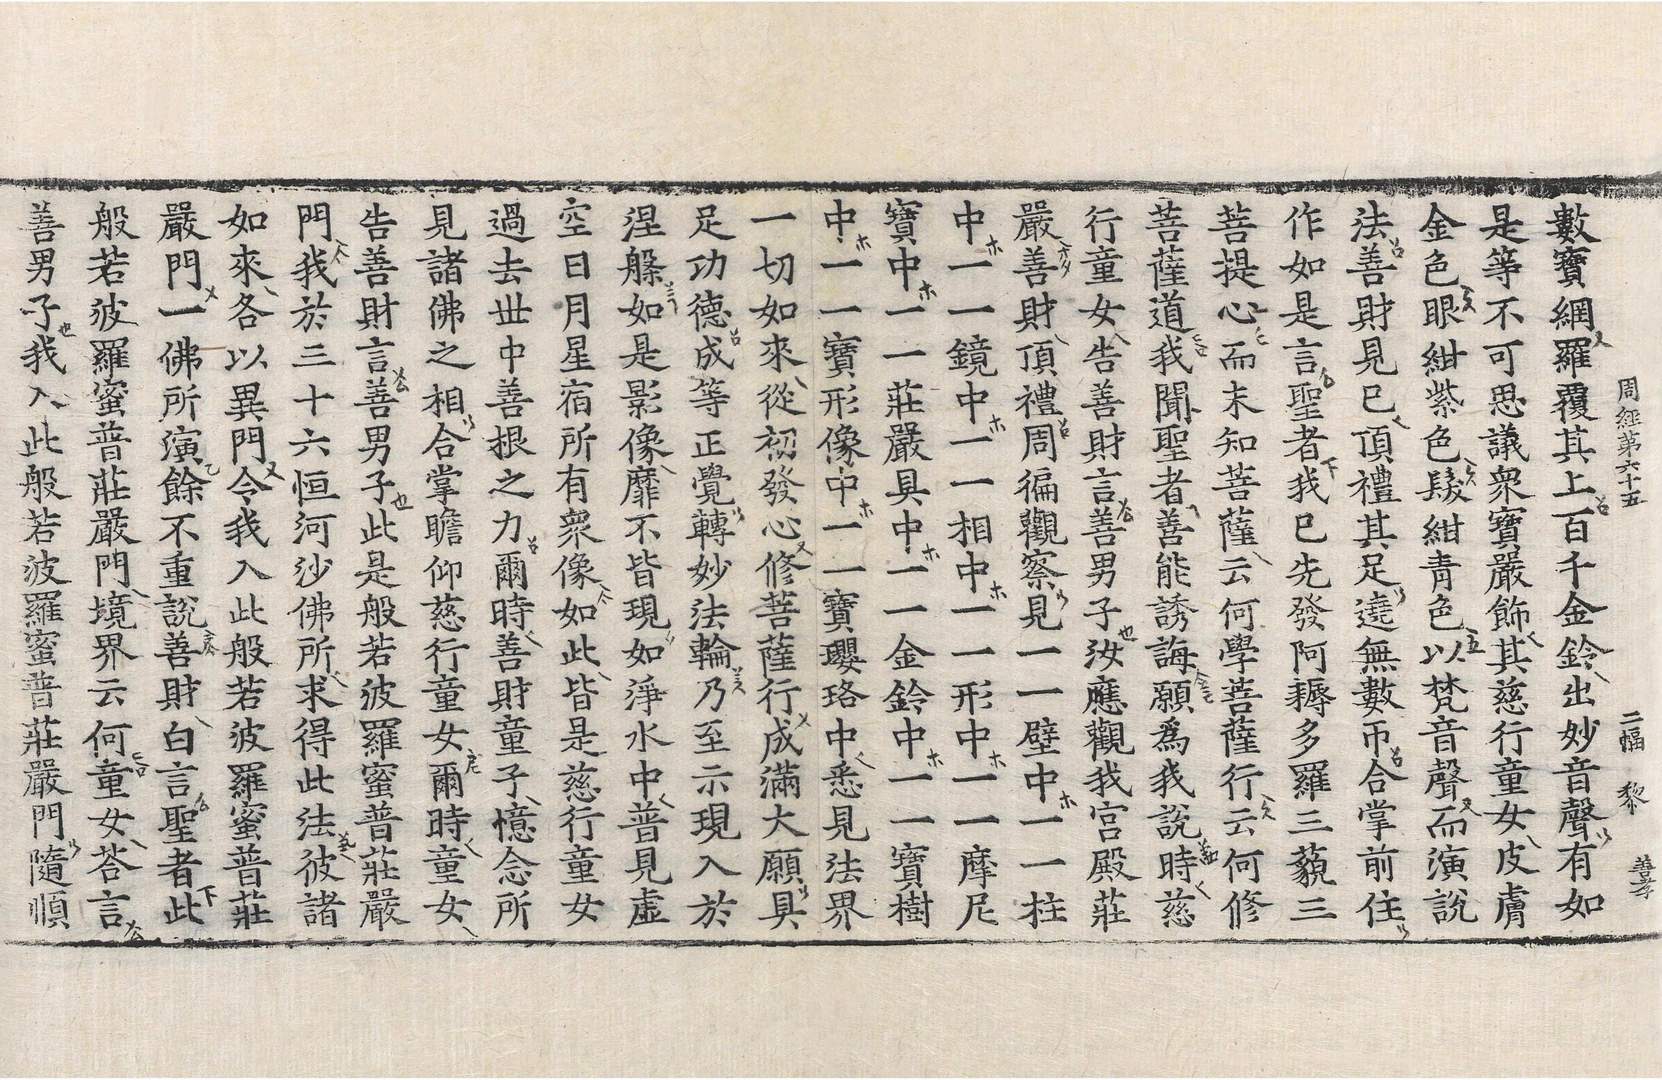 周經第六十五 二幅 黎 善孝
數寶網羅覆其上百千金鈴出妙音聲有如
是等不可思議衆寶嚴飾其慈行童女皮膚
金色眼紺紫色髮紺靑色以梵音聲而演說
法善財見已頂禮其足遶無數帀合掌前住
作如是言聖者我已先發阿耨多羅三藐三
菩提心而未知菩薩云何學菩薩行云何修
菩薩道我聞聖者善能誘誨願爲我說時慈
行童女告善財言善男子汝應觀我宮殿莊
嚴善財頂禮周徧觀察見一一壁中一一柱
中一一鏡中一一相中一一形中一一摩尼
寶中一一莊嚴具中一一金鈴中一一寶樹
中一一寶形像中一一寶瓔珞中悉見法界
一切如來從初發心修菩薩行成滿大願具
足功德成等正覺轉妙法輪乃至示現入於
涅槃如是影像靡不皆現如淨水中普見虛
空日月星宿所有衆像如此皆是慈行童女
過去世中善根之力爾時善財童子憶念所
見諸佛之相合掌瞻仰慈行童女爾時童女
告善財言善男子此是般若波羅蜜普莊嚴
門我於三十六恒河沙佛所求得此法彼諸
如來各以異門令我入此般若波羅蜜普莊
嚴門一佛所演餘不重說善財白言聖者此
般若波羅蜜普莊嚴門境界云何童女荅言
善男子我入此般若波羅蜜普莊嚴門隨順